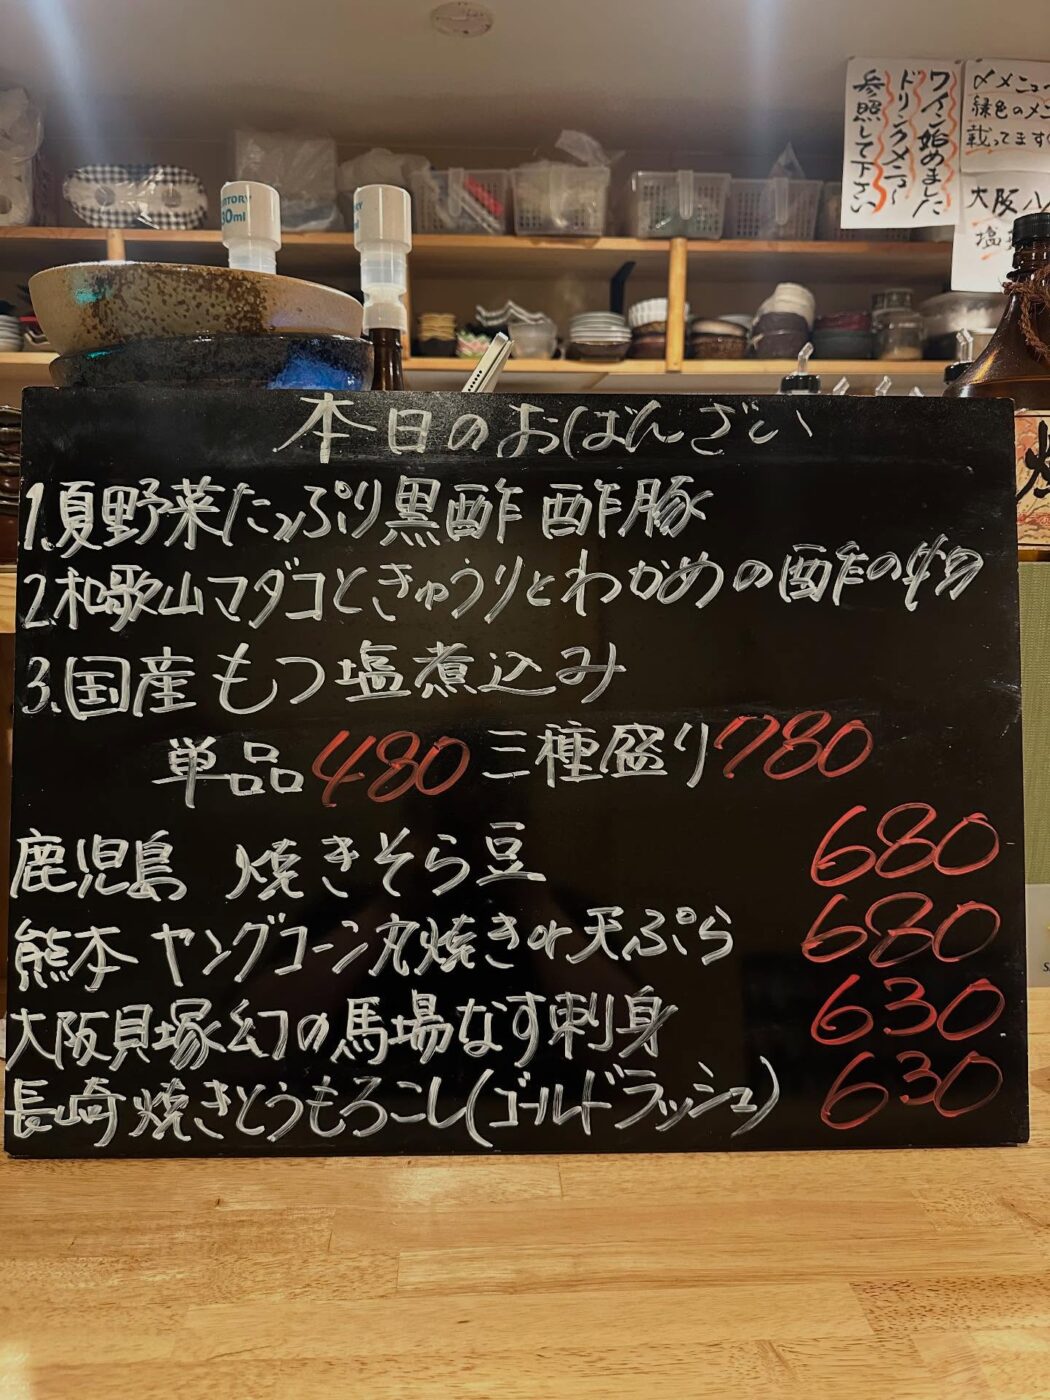 ワイン始めました
ドリンクメニュー
参照して下さい
〆メニュー
緑色のメニ
載ってます
大阪八
塩
NTORY
30ml
RY
本日のおばんざい
1.夏野菜たっぷり黒酢 酢豚
2.和歌山マダコときゅうりとわかめの酢の物
3.国産もつ塩煮込み
単品480 三種盛り780
鹿児島 焼きそら豆 680
熊本 ヤングコーン丸焼きor天ぷら 680
大阪貝塚幻の馬場なす刺身 630
長崎 焼きとうもろこし(ゴールドラッシュ) 630